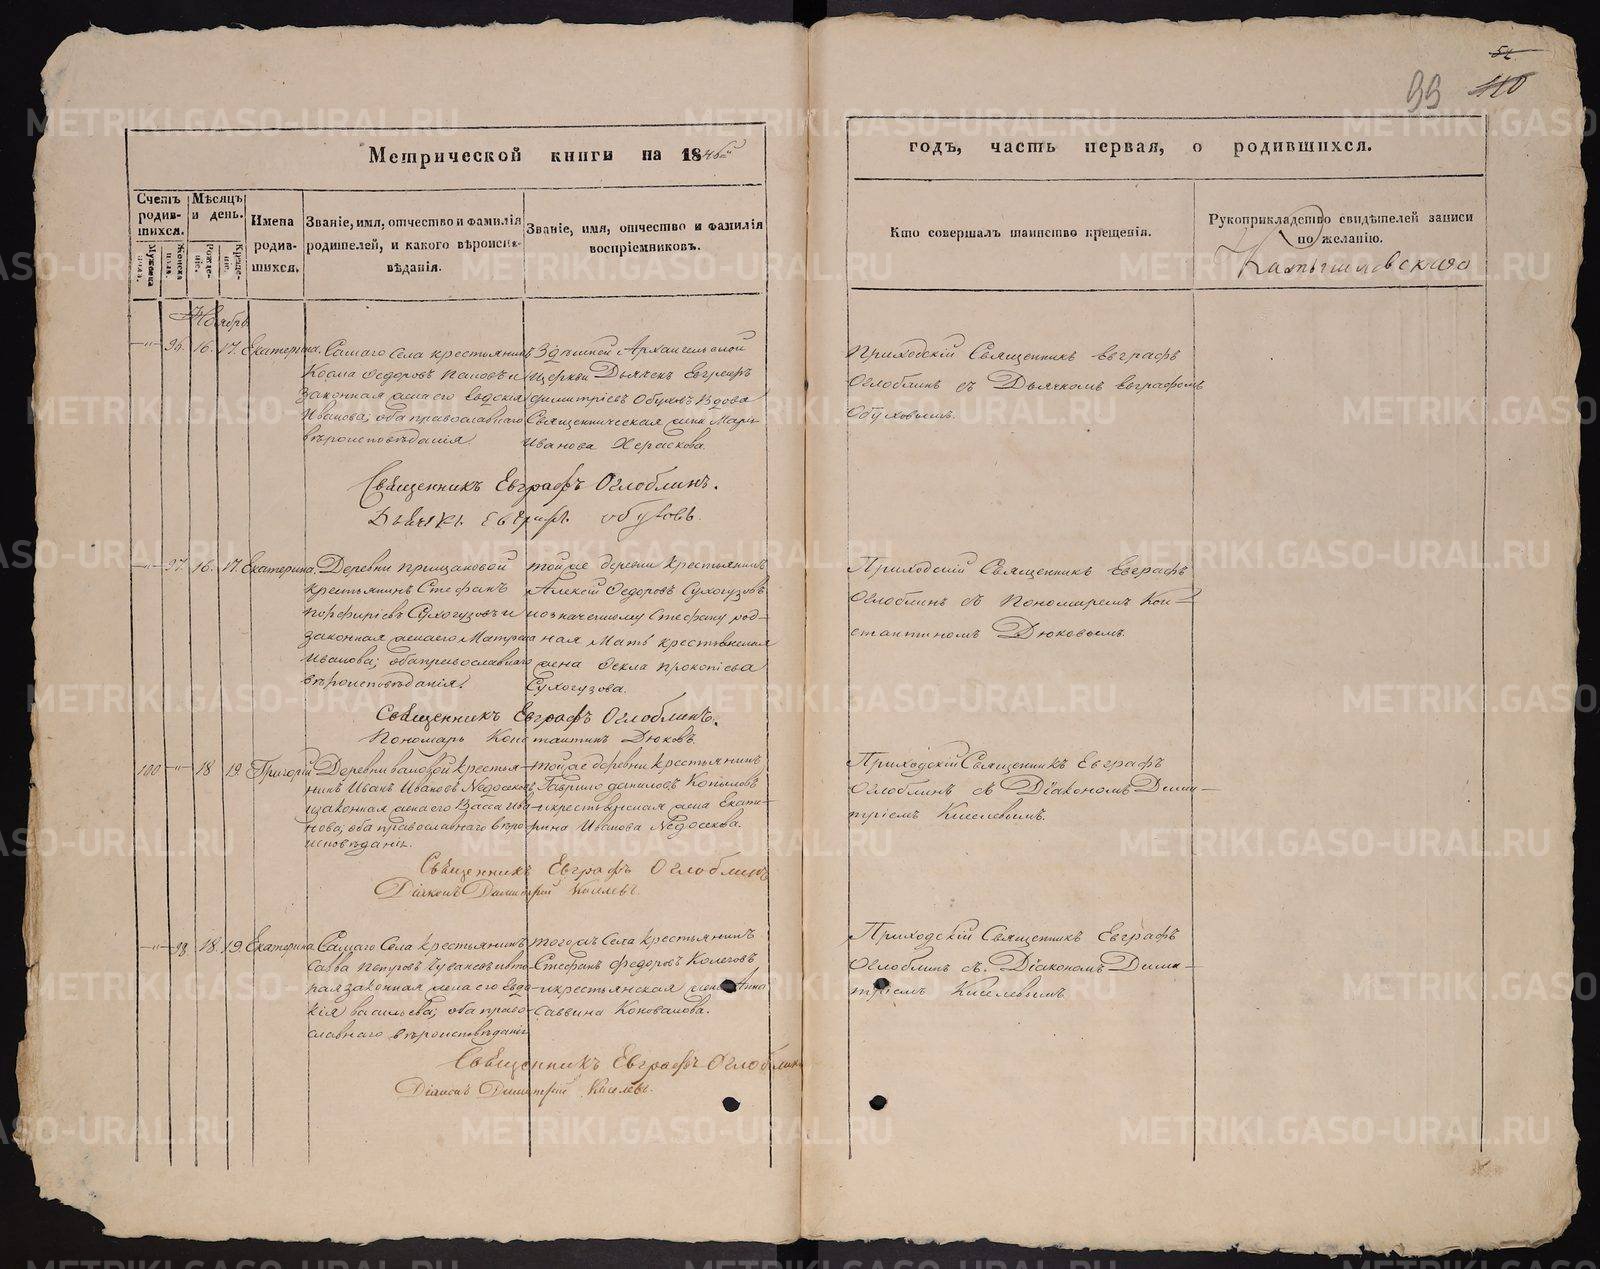 54
99 110
Метрической книги на 1846й
годъ, часть первая, о родившихся.
Счетъ родив-шихся.
Мужеска пола.
Женска пола.
Мѣсяцъ и день.
Рожде-нiе.
Креще-нiе.
Имена родив-шихся.
Званiе, имя, отчество и фамилiя родителей, и какого вѣроиспо-вѣданiя.
Званiе, имя, отчество и фамилiя воспрiемниковъ.
Кто совершалъ таинство крещенiя.
Рукоприкладство свидѣтелей записи по желанiю.
Ноябрь
96. 16. 17. Екатерина.
Самаго Села крестьянинъ
Косма Федоровъ Пановъ и
законная жена его Евдокiя
Иванова; оба православнаго
вѣроисповѣданiя.
Здѣшней Архангельской
Церкви Дьячекъ Евграфъ
Димитрiевъ Обуховъ Вдова
Священническая жена Марья
Иванова Хераскова.
Приходскiй Священникъ Евграфъ
Оглоблинъ съ Дьячкомъ Евграфомъ
Обуховымъ.
Священникъ Евграфъ Оглоблинъ.
Дьячекъ Евграфъ Обуховъ.
97. 16. 17. Екатерина.
Деревни
крестьянинъ Стефанъ
Порфирiевъ Сухогузовъ и
законная жена его Матрена
Иванова; оба православнаго
вѣроисповѣданiя.
той же деревни крестьянинъ
Алексiй Федоровъ Сухогузовъ
и означенному Стефану род-
ная Мать крестьянская
жена Фекла Прокопiева
Сухогузова.
Приходскiй Священникъ Евграфъ
Оглоблинъ съ Пономаремъ Кон-
стантиномъ Дюковымъ.
Священникъ Евграфъ Оглоблинъ.
Пономарь Константинъ Дюковъ.
100 18 19. Григорiй
Деревни крестья-
нинъ Иванъ Ивановъ Недосековъ
и законная жена его Васса Ива-
нова, оба православнаго вѣро-
исповѣданiя.
той же деревни крестьянинъ
Гаврило Даниловъ Копыловъ
и крестьянская жена Екате-
рина Иванова Недосекова.
Приходскiй Священникъ Евграфъ
Оглоблинъ съ Дiакономъ Дими-
трiемъ Киселевымъ.
Священникъ Евграфъ Оглоблинъ
Дiаконъ Димитрiй Киселевъ.
98. 18. 19. Екатерина.
Самаго Села крестьянинъ
Савва Петровъ
законная жена его Евдо-
кiя Васильева; оба право-
славнаго вѣроисповѣданiя
того жъ Села крестьянинъ
Стефанъ Федоровъ
и крестьянская жена Анна
Саввина Коновалова.
Приходскiй Священникъ Евграфъ
Оглоблинъ съ Дiакономъ Дими-
трiемъ Киселевымъ
Священникъ Евграфъ Оглоблинъ
Дiаконъ Димитрiй Киселевъ.
METRIKI.GASO-URAL.RU